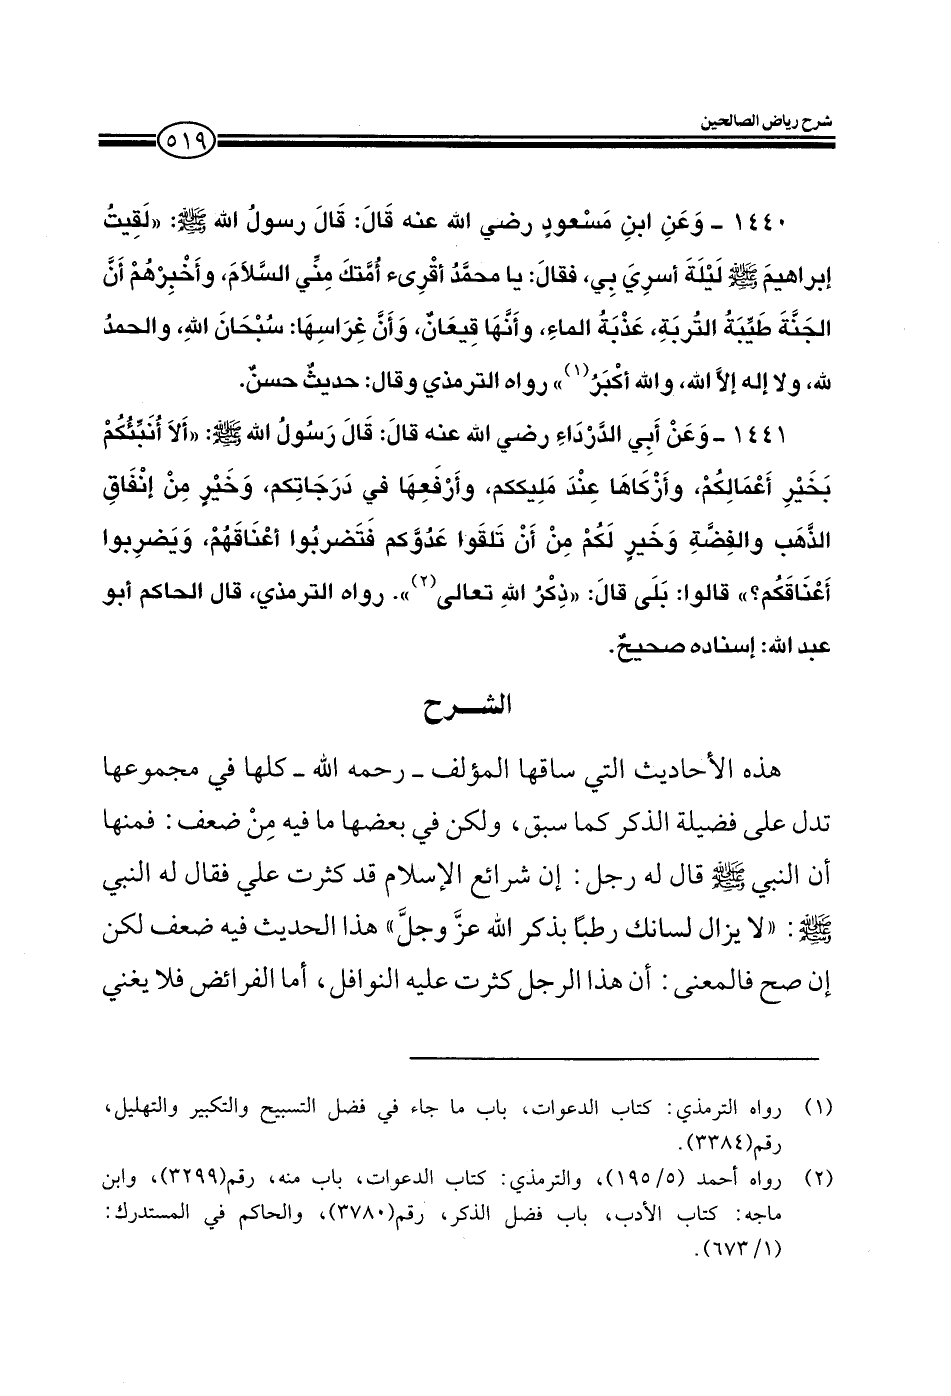 شرح رياض الصالحين
٥١٩
١٤٤٠ ـ وَعَنِ ابنِ مَسْعودٍ رضي الله عنه قَالَ: قَالَ رسولُ الله ﷺ: «لَقِيتُ
إبراهيمَ ﷺ لَيْلَةَ أسرِيَ بِي، فقالَ: يا محمَّدُ أقْرِىء أُمَّتكَ مِنِّي السَّلاَمَ، وأخْبِرْهُمْ أنَّ
الجَنَّةَ طَيِّبَةُ التُّربَةِ، عَذْبَةُ الماءِ، وأنَّهَا قِيعَانٌ، وَأنَّ غِراسِهَا: سُبْحَانَ اللهِ، والحمدُ
لله، ولا إله إلاَّ الله، والله أكْبَرُ(١)» رواه الترمذي وقال: حديثٌ حسنٌ.
١٤٤١ ـ وَعَنْ أبي الدَّرْدَاءِ رضي الله عنه قالَ: قَالَ رَسُولُ الله ﷺ: «ألاَ أُنَبِّئُكُمْ
بخَيْرِ أعْمَالِكُمْ، وأزْكَاهَا عِنْدَ مَلِيككم، وأرْفَعِهَا في دَرَجَاتِكم، وَخَيْرٍ مِنْ إنْفَاقِ
الذَّهَبِ والفِضَّةِ وَخَيرٍ لَكُمْ مِنْ أنْ تَلقَوا عَدُوَّكم فَتَضربُوا أعْنَاقَهُمْ، وَيَضرِبوا
أعْنَاقَكُم؟» قالوا: بَلَى قالَ: «ذِكْرُ اللهِ تعالى(٢)». رواه الترمذي، قال الحاكم أبو
عبد الله: إسناده صحيحٌ.
الشـــرح
هذه الأحاديث التي ساقها المؤلف ـ رحمه الله ـ كلها في مجموعها
تدل على فضيلة الذكر كما سبق، ولكن في بعضها ما فيه مِنْ ضعف: فمنها
أن النبي ﷺ قال له رجل: إن شرائع الإسلام قد كثرت علي فقال له النبي
ﷺ: «لا يزال لسانك رطبًا بذكر الله عزَّ وجلَّ» هذا الحديث فيه ضعف لكن
إن صح فالمعنى: أن هذا الرجل كثرت عليه النوافل، أما الفرائض فلا يغني
(١) رواه الترمذي: كتاب الدعوات، باب ما جاء في فضل التسبيح والتكبير والتهليل،
رقم(٣٣٨٤).
(٢) رواه أحمد (١٩٥/٥)، والترمذي: كتاب الدعوات، باب منه، رقم(٣٢٩٩)، وابن
ماجه: كتاب الأدب، باب فضل الذكر، رقم(٣٧٨٠)، والحاكم في المستدرك:
(٦٧٣/١).